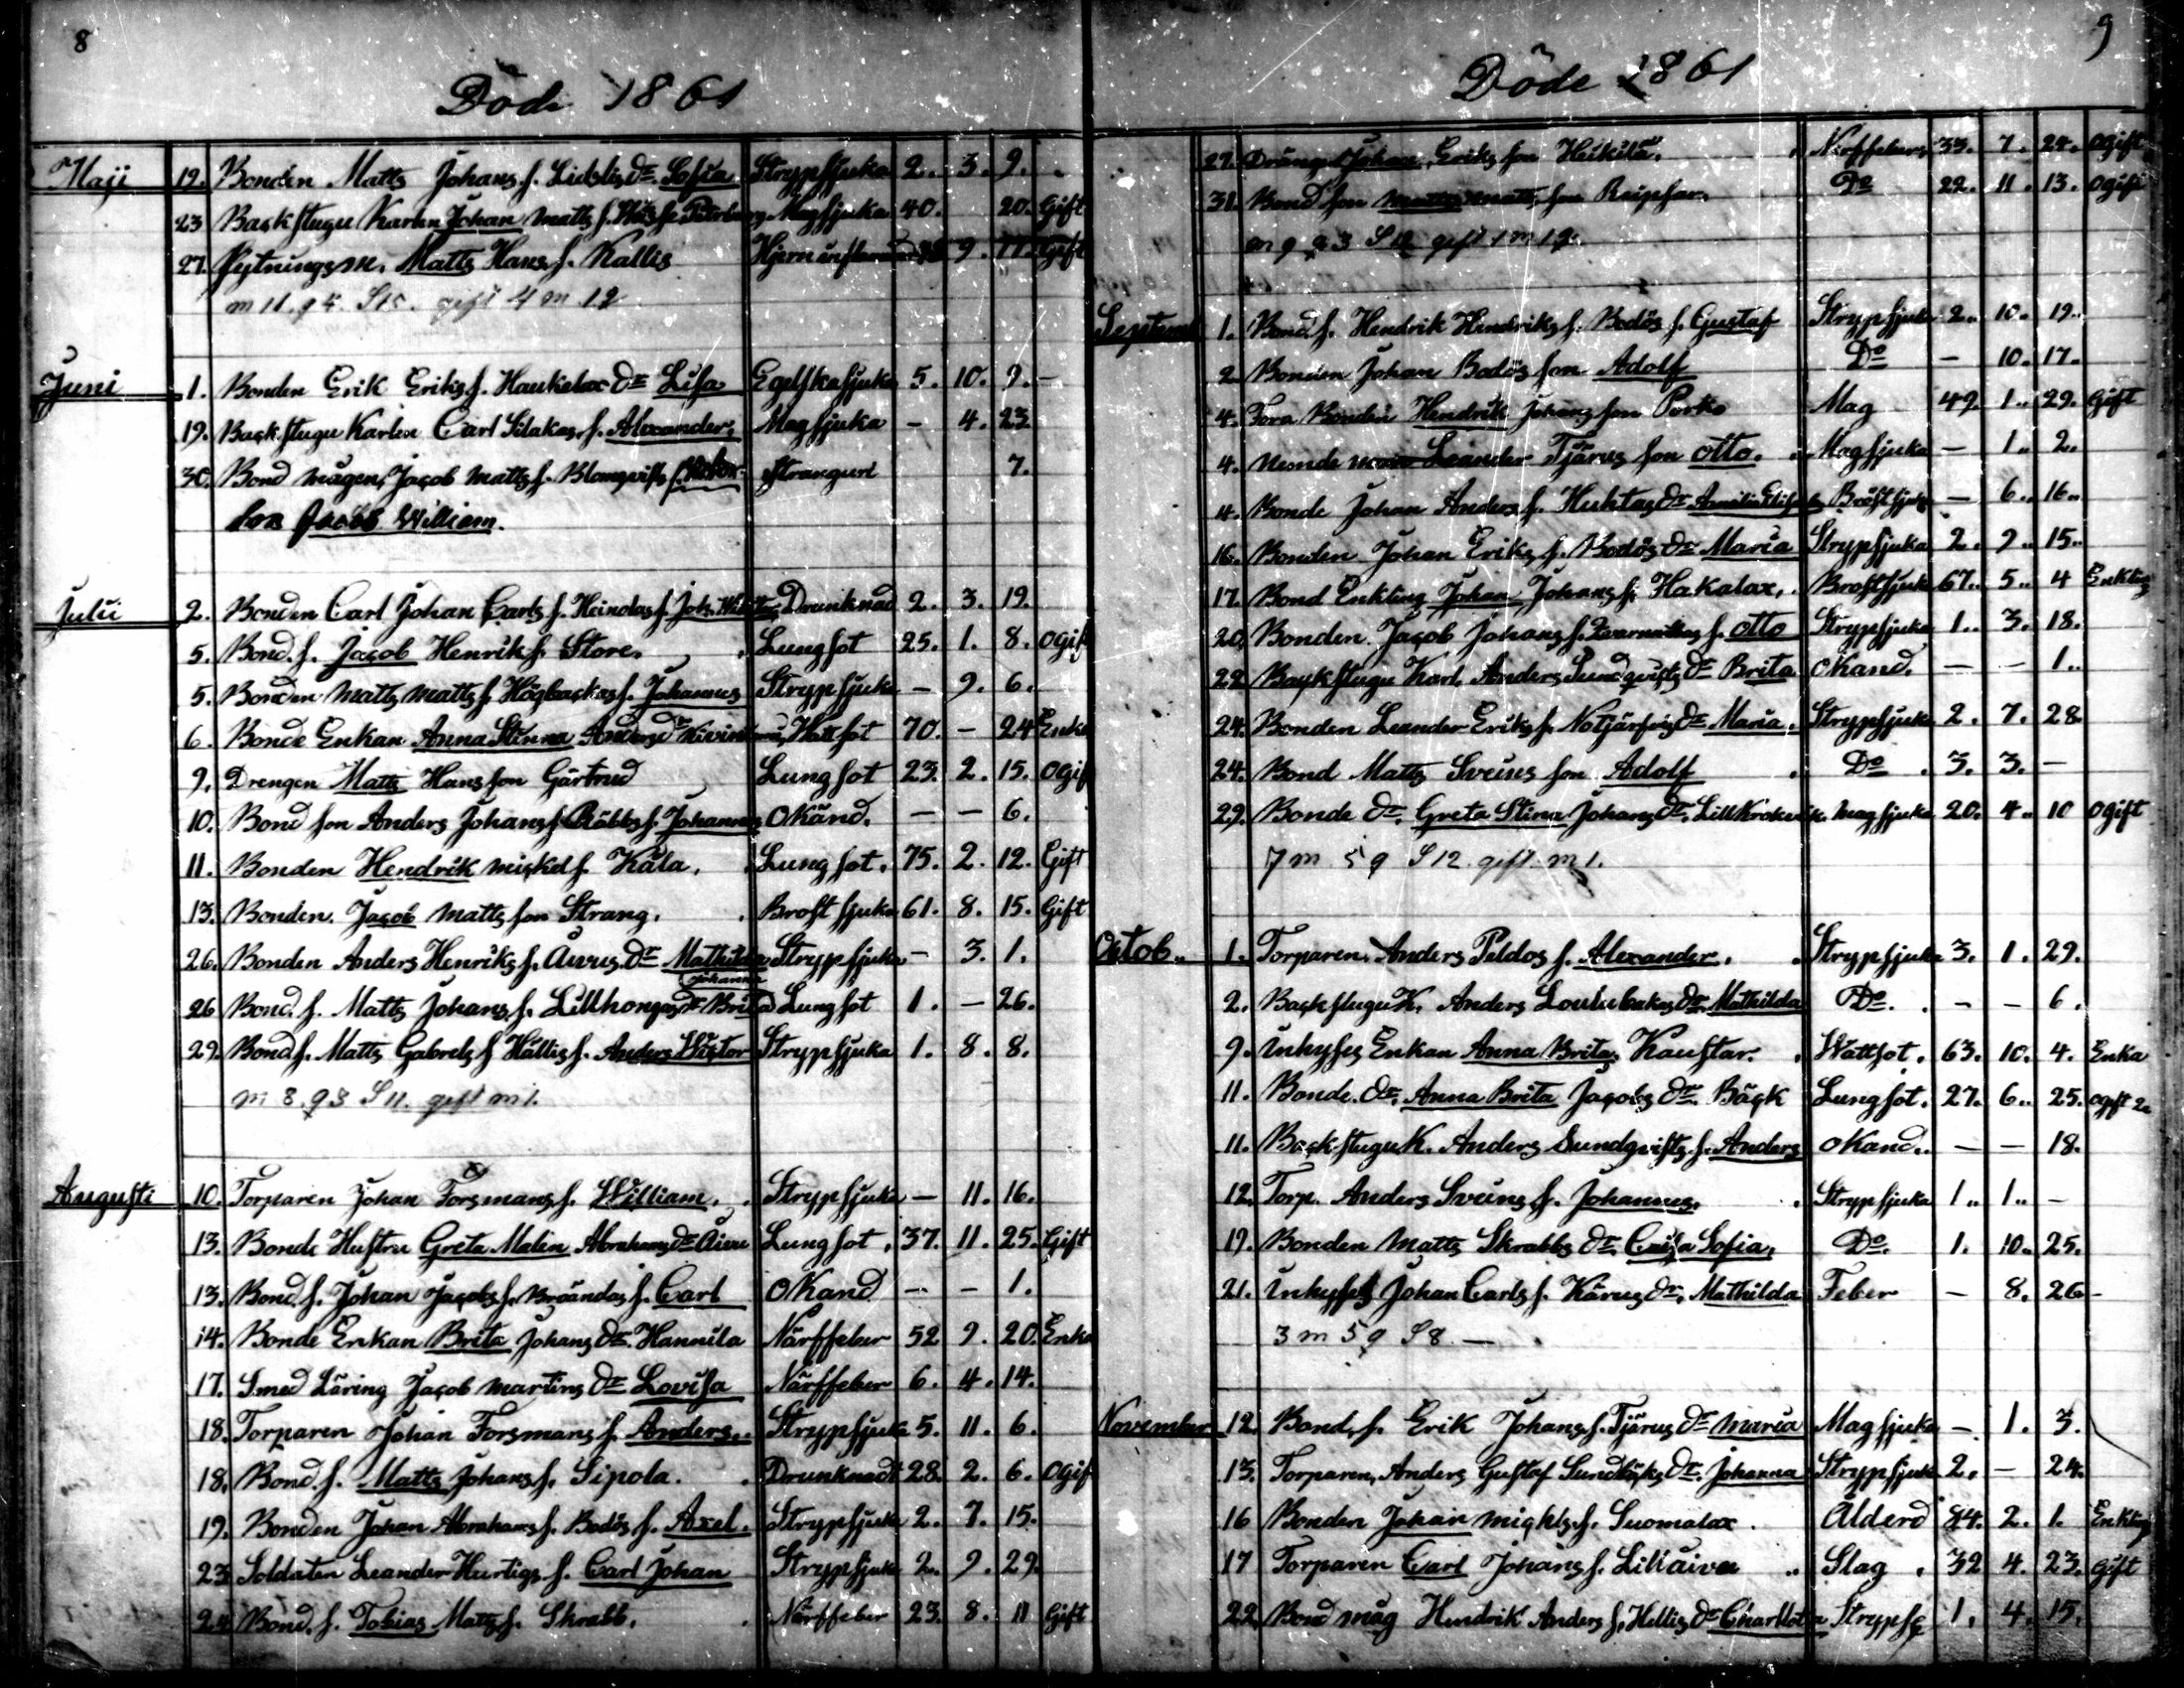 8
Döde 1861
Maji 19. Bonden Matts Johans s. Lidsls dr Sofia Strypsjuka 2. 3. 9.
23 Backstugu Karlen Johan Matts s. Magsjuka 40. 20. Gift
27. Matts Hans s. Kallis 9. 11. Gift
m 11. q 4. S 15. gift 4 m. 12
Juni 1. Bonden Erik Eriks s. Haukalax dr Lisa Egelskasjuka 5. 10. 9. –
19. Backstugu Karlen Carl Silakas s. Alexander, Magsjuka – 4. 23
30. Bond mågen, Jacob Matts s. Blomqvists Stranguri 7.
son Jacob William.
Julii 2. Bonden Carl Johan Carls s. Heindas s. Joh. Drunknad 2. 3. 19.
5. Bond. s. Jacob Henrik s. Store. Lungsot 25. 1. 8. Ogif
5. Bonden Matts Matts s. Högbackas s. Johannes Strypsjuka – 9. 6.
6. Bonde Enkan Anna Stinna Anders dr Wattsot 70. – 24 Enka
9. Drengen Matts Hans son Gärtrud Lungsot 23. 2. 15. Ogif
10. Bond son Anders Johans s. Räbbs s. Johannes Okänd. – – 6.
11. Bonden Hendrik Mickel s. Kåla. Lungsot. 75. 2. 12. Gift
13. Bonden. Jacob Matts son Strang. Brostsjuka 61. 8. 15. Gift
26. Bonden Anders Henriks s. Åivus dr Mathilda Strypsjuka – 3. 1.
Johanna
26 Bond. s. Matts Johans s. Lillhongas dr Brita Lungsot 1. – 26.
29. Bond s. Matts Gabrels s Hällis s. Anders Wictor Strypsjuka 1. 8. 8.
m 8. q 3 S 11. gift m 1.
Augusti 10. Torparen Johan Forsmans s. William. Strypsjuka – 11. 16.
13. Bonde Hustru Greta Malin Abrahams dr Lungsot. 37. 11. 25. Gift
13. Bond. s. Johan Jacobs s. Bröändas s. Carl Okand – – 1.
14. Bonde Enkan Brita Johans dr Hannila Närffeber 52 9. 20. Enka
17. Smed Läring Jacob Martins dr Lovisa Närffeber 6. 4. 14.
18. Torparen Johan Forsmans s. Anders. Strypsjuka 5. 11. 6.
18. Bond. s. Matts Johans s. Sipola. Drunknadt 28. 2. 6. Ogif
19. Bonden Johan Abrahams s. Bodös s. Axel. Strypsjuka 2. 7. 15.
23 Soldaten Leander Hurtigs s. Carl Johan Strypsjuka 2. 9. 29.
24 Bond. s. Tobias Matts s. Skrabb. Närffeber 23. 8. 11 Gift
9
Döde 1861
27. Dräng Johan Eriks son Heikilä. Närffeber 33. 7. 24. Ogift
31. Bond son Matts Matts son Do 22. 11. 13. Ogift
m 9 q 3 S 12 gift 1 m 19.
Septemb 1. Bond. s. Hendrik Hendriks s. Bodös s. Gustaf Strypsjuka 2. 10. 19.
2 Bonden Johan Bodös son Adolf Do – 10. 17.
4. Fora Bonden Hendrik Johans son Porko Mag 49. 1. 29. Gift
4. Leander Tjärus son Otto. Magsjuka – 1. 2.
4. Bonde Johan Anders s. Huktas dr Bröstsjuka – 6. 16.
16. Bonden Johan Eriks s. Bodös dr Maria Strypsjuka 2. 9. 15.
17. Bond Enkling Johan Johans s. Hakalax. Brostsjuka 67. 5. 4 Enkling
20. Bonden. Jacob Johans s. s. Otto Strypsjuka 1. 3. 18.
22 Backstugu Karl. Anders Sundqvists dr Brita Okand. – – 1.
24. Bonden Leander Eriks s. dr Maria. Strypsjuka 2. 7. 28
24. Bond Matts Sveins son Adolf Do. 3. 3. –
29. Bonde dr. Greta Stina Johans dr. Magsjuka 20. 4. 10 Ogift
7 m 5 q S 12 gift m 1.
Octob. 1. Torparen. Anders Peldos s. Alexander. Strypsjuka 3. 1. 29.
2. Backstugu K. Anders dr Mathilda Do. – – 6.
9. Inhyses Enkan Anna Brita Kaustar. Wattsot. 63. 10. 4. Enka
11. Bonde. dr. Anna Brita Jacobs dr. Bäck Lungsot. 27. 6. 25. Ogift 2
11. Backstugu K. Anders Sundqvists s. Anders Okand. – – 18.
12. Torp. Anders Sveins s. Johannes. Strypsjuka 1. 1. –
19. Bonden Matts Skrabbs dr. Caisa Sofia. Do. 1. 10. 25.
21. Inhyses Johan Carls s. Kärus dr. Mathilda Feber – 8. 26 –
3 m 5 q S 8. –
November 12. Bond. s. Erik Johans s. Tjärus dr Maria Magsjuka – 1. 3.
13. Torparen, Anders Gustaf dr. Johanna Strypsjuk 2. – 24.
16 Bonden Johan Mickels s. Suomalax. Ålderd 84. 2. 1. Enkling
17 Torparen Carl Johans s. Lillåivu Slag. 32 4. 23. Gift
22. Bond måg Hendrik Anders s. Hellis dr Charllota Strypsj 1. 4. 15.